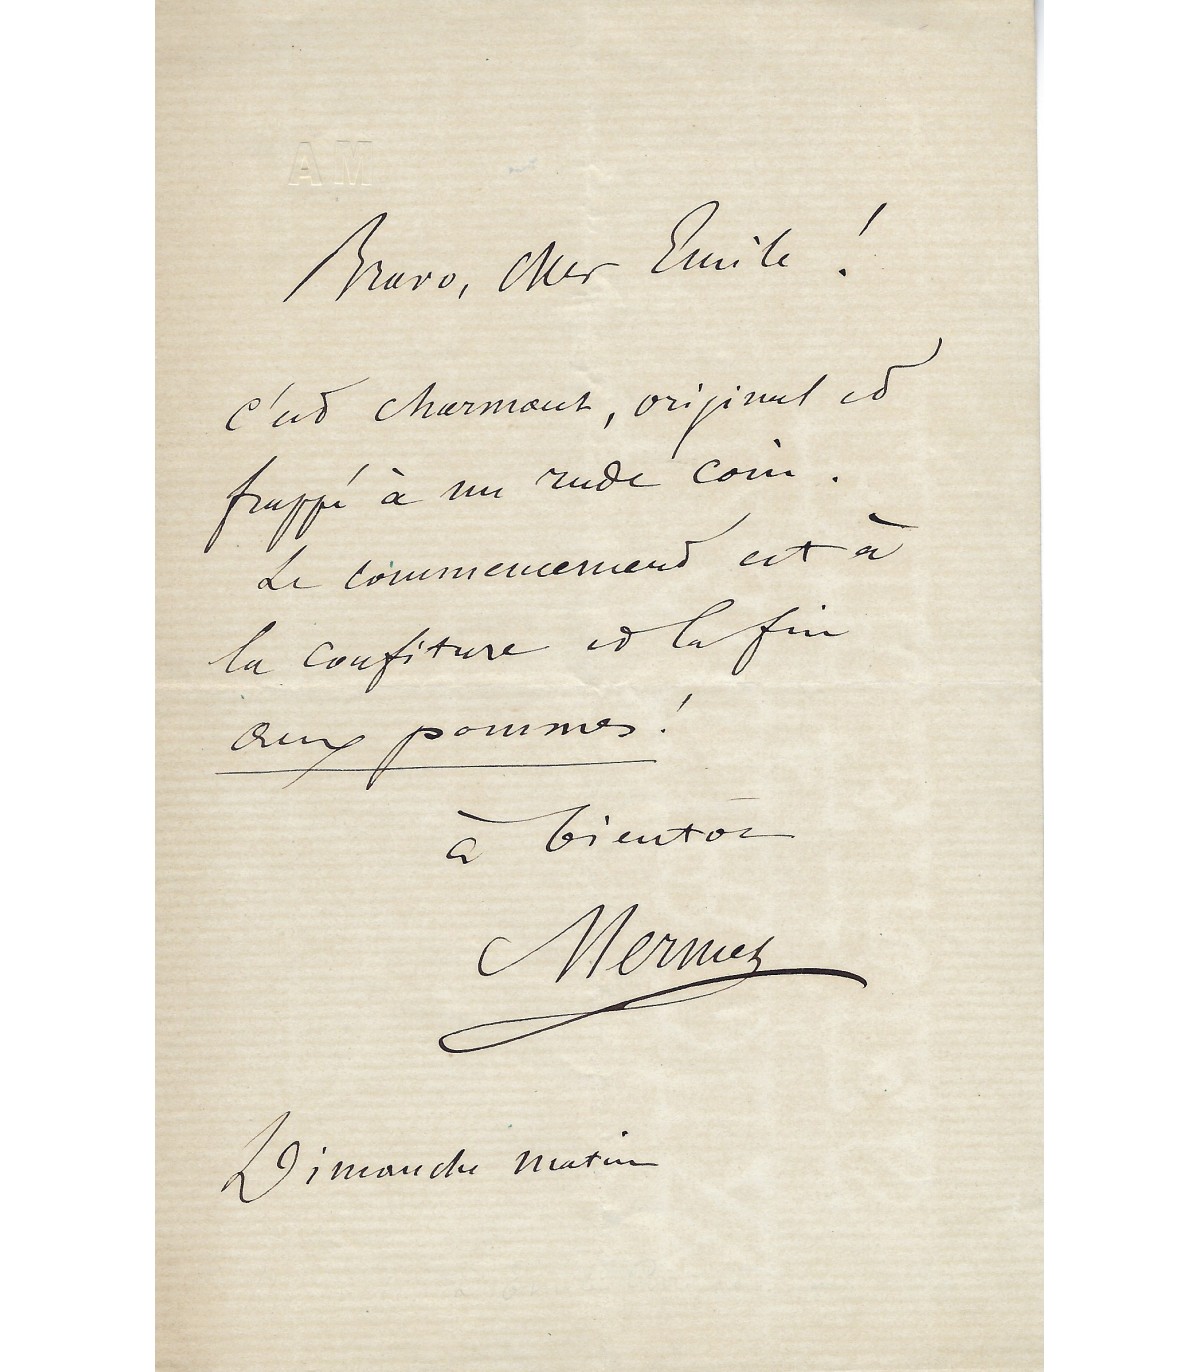 AM
Bravo, cher Emile !
c'est charmant, original et
frappé à un rude coin.
Le commencement est à
la confiture et la fin
aux pommes !
à bientôt
Mermet
Dimanche matin